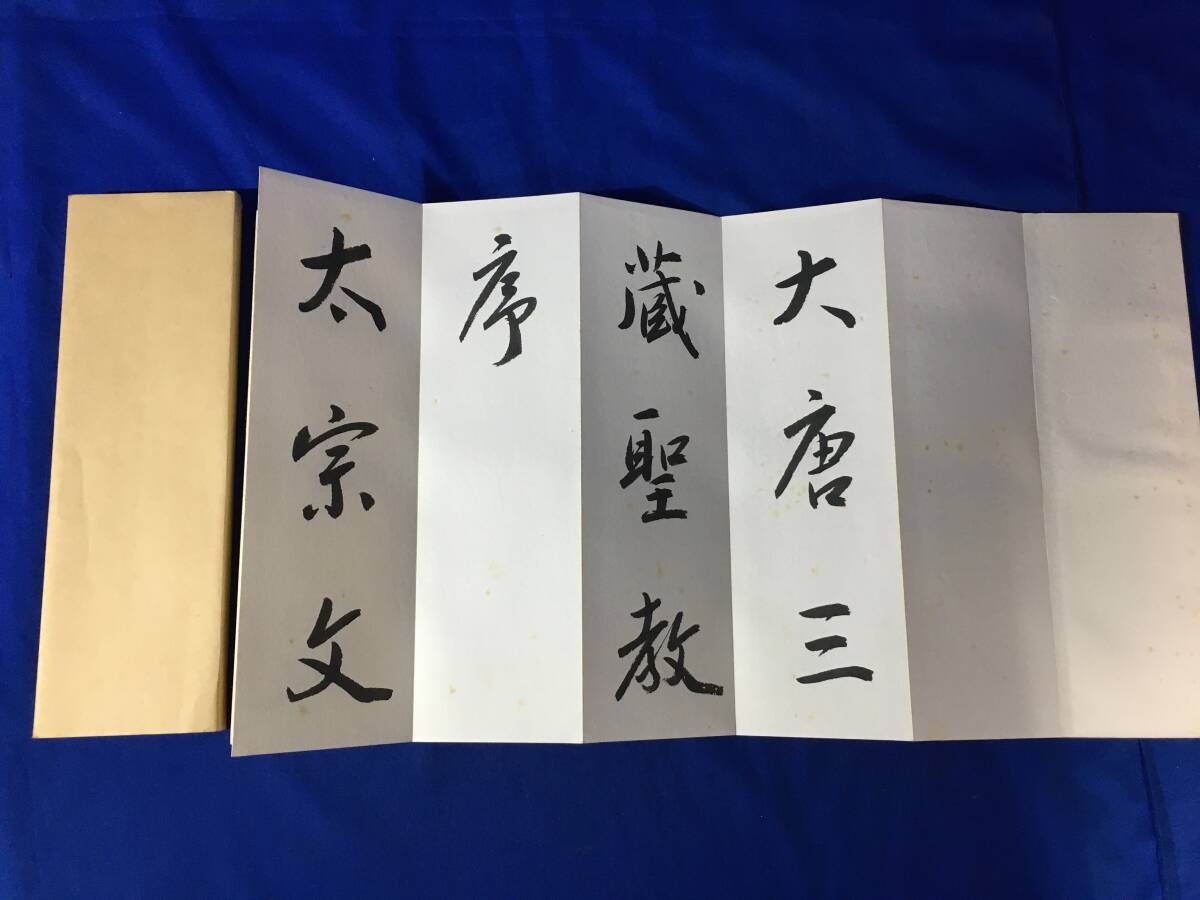 大唐三
藏聖教
序
太宗文